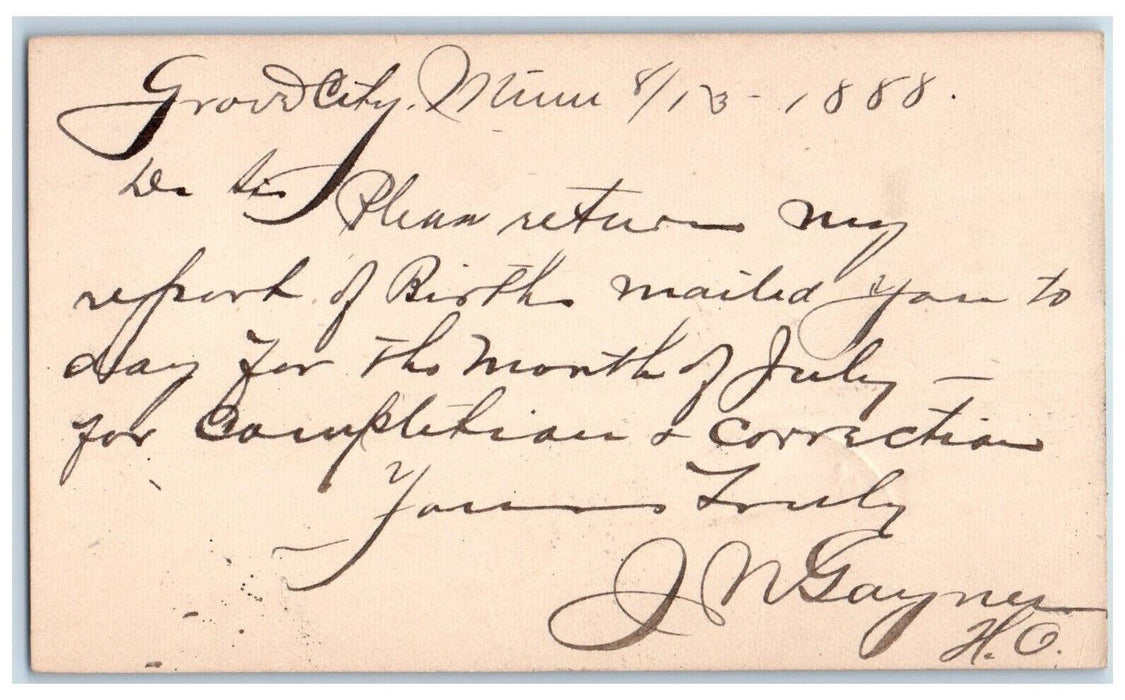 Grove City, Minn 8/13 - 1888.
Dr Sir Please return my
report of Births mailed you to
day for the Month of July -
for Completion & correction
Yours Truly
J N Gaynor
H.O.